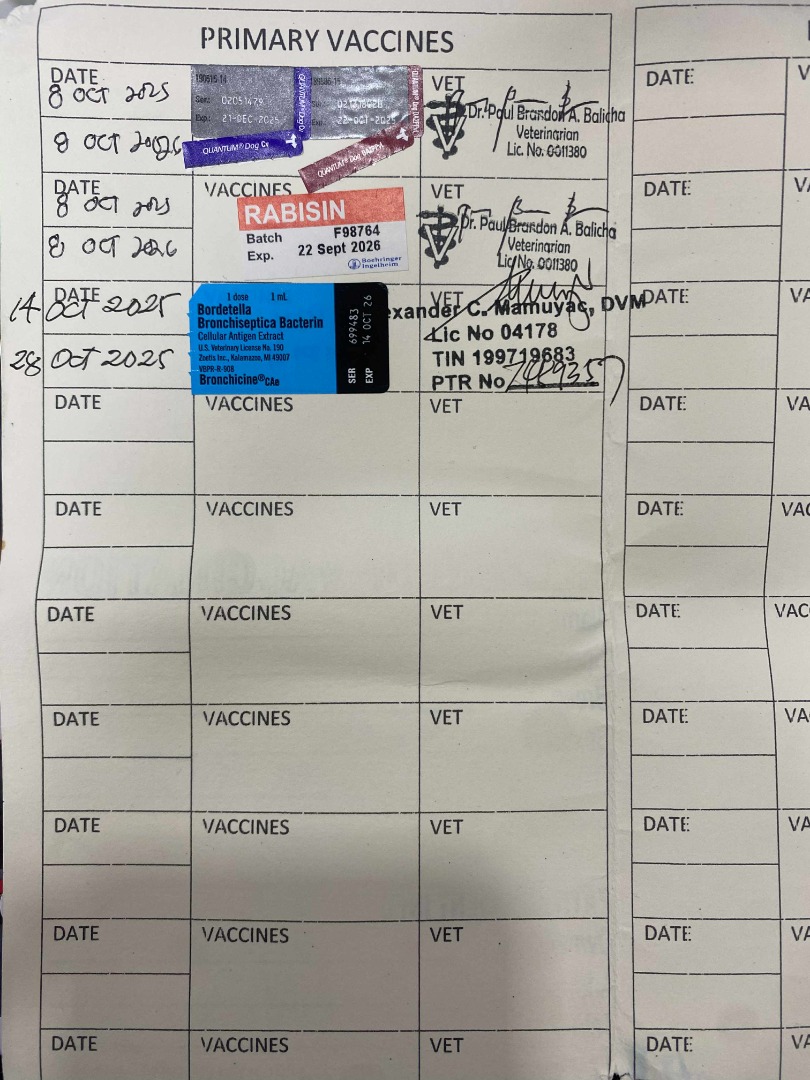 PRIMARY VACCINES
DATE
8 OCT 2025
8 OCT 2026
190515-14
Ser.: 02051479
Exp.: 21-DEC-2025
QUANTUM® Dog Cv
QUANTUM® Dog Cv
Exp.: 22-OCT-2025
QUANTUM® Dog DA2PPv
VET
Dr. Paul Brandon A. Balicha
Veterinarian
Lic. No. 0011380
DATE
8 OCT 2025
8 OCT 2026
VACCINES
RABISIN
Batch F98764
Exp. 22 Sept 2026
Boehringer
Ingelheim
VET
Dr. Paul Brandon A. Balicha
Veterinarian
Lic. No. 0011380
DATE
14 OCT 2025
28 OCT 2025
1 dose 1 mL
Bordetella
Bronchiseptica Bacterin
Cellular Antigen Extract
U.S. Veterinary License No. 190
Zoetis Inc., Kalamazoo, MI 49007
VBPR-R-908
Bronchicine® CAe
SER 699483
EXP 14 OCT 26
VET
exander C. Mamuyac, DVM
Lic No 04178
TIN 199719683
PTR No 7489357
DATE VACCINES VET
DATE VACCINES VET
DATE VACCINES VET
DATE VACCINES VET
DATE VACCINES VET
DATE VACCINES VET
DATE VACCINES VET
DATE V
DATE VA
DATE
DATE VA
DATE VAC
DATE VACC
DATE VA
DATE VA
DATE VA
DATE VA